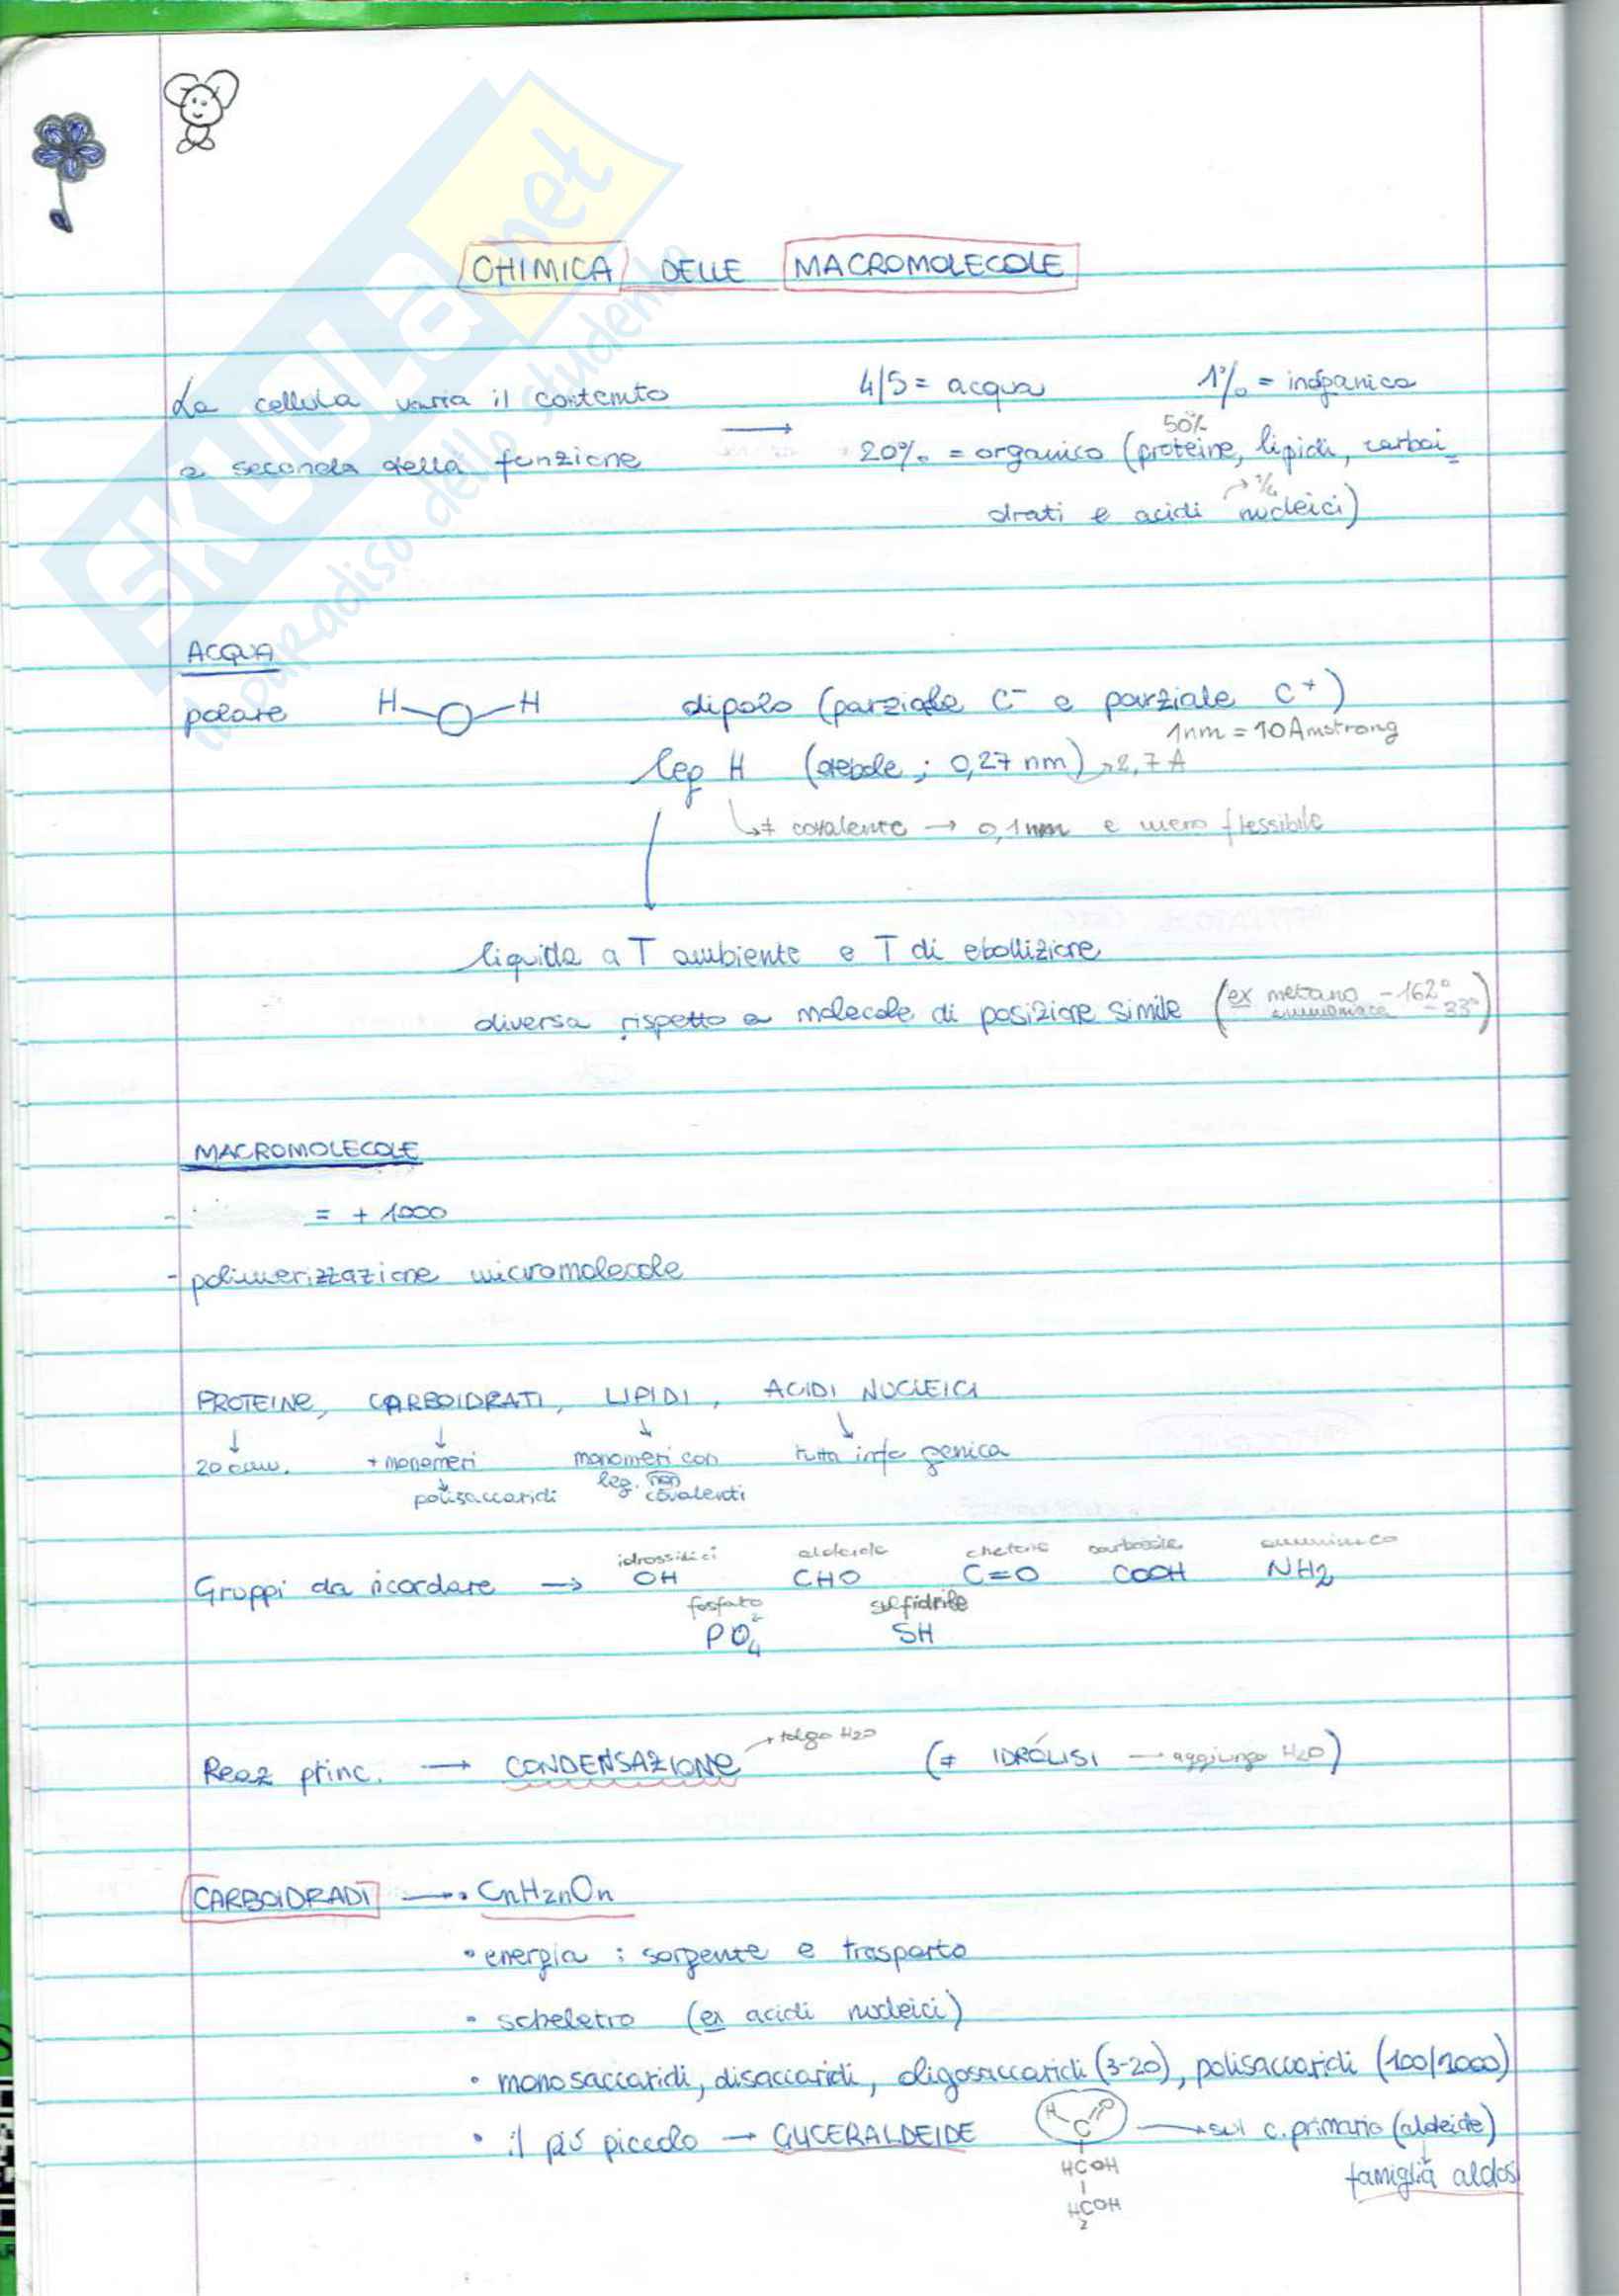 SKUOLA.net
il paradiso dello studente
CHIMICA DELLE MACROMOLECOLE
La cellula varia il contenuto
a seconda della funzione
→ 4/5 = acqua 1% = inorganica
50%
20% = organico (proteine, lipidi, carboi-
drati e acidi nucleici)
ACQUA
polare H-O-H dipolo (parziale C⁻ e parziale C⁺)
1nm = 10 Amstrong
leg H (debole ; 0,27 nm) → 2,7 A
↳ ≠ covalente → 0,1 nm e meno flessibile
liquida a T ambiente e T di ebollizione
diversa rispetto a molecole di posizione simile (ex metano -162°
ammoniaca -33°)
MACROMOLECOLE
- = + 1000
- polimerizzazione micromolecole
PROTEINE, CARBOIDRATI, LIPIDI, ACIDI NUCLEICI
↓ ↓ ↓ ↓
20 amm. + monomeri monomeri con tutta info genica
↓ polisaccaridi leg. non covalenti
idrossidici aldeide chetone carbossile amminico
Gruppi da ricordare → OH CHO C=O COOH NH2
fosfato solfidrile
PO₄²⁻ SH
→ tolgo H2O
Reaz princ. → CONDENSAZIONE (≠ IDROLISI → aggiungo H2O)
CARBOIDRADI → • CnH2nOn
• energia : sorgente e trasporto
• scheletro (ex acidi nucleici)
• monosaccaridi, disaccaridi, oligosaccaridi (3-20), polisaccaridi (100/1000)
• il più piccolo → GLICERALDEIDE H C=O → sul c. primario (aldeide)
HCOH
famiglia aldosi
HCOH
2